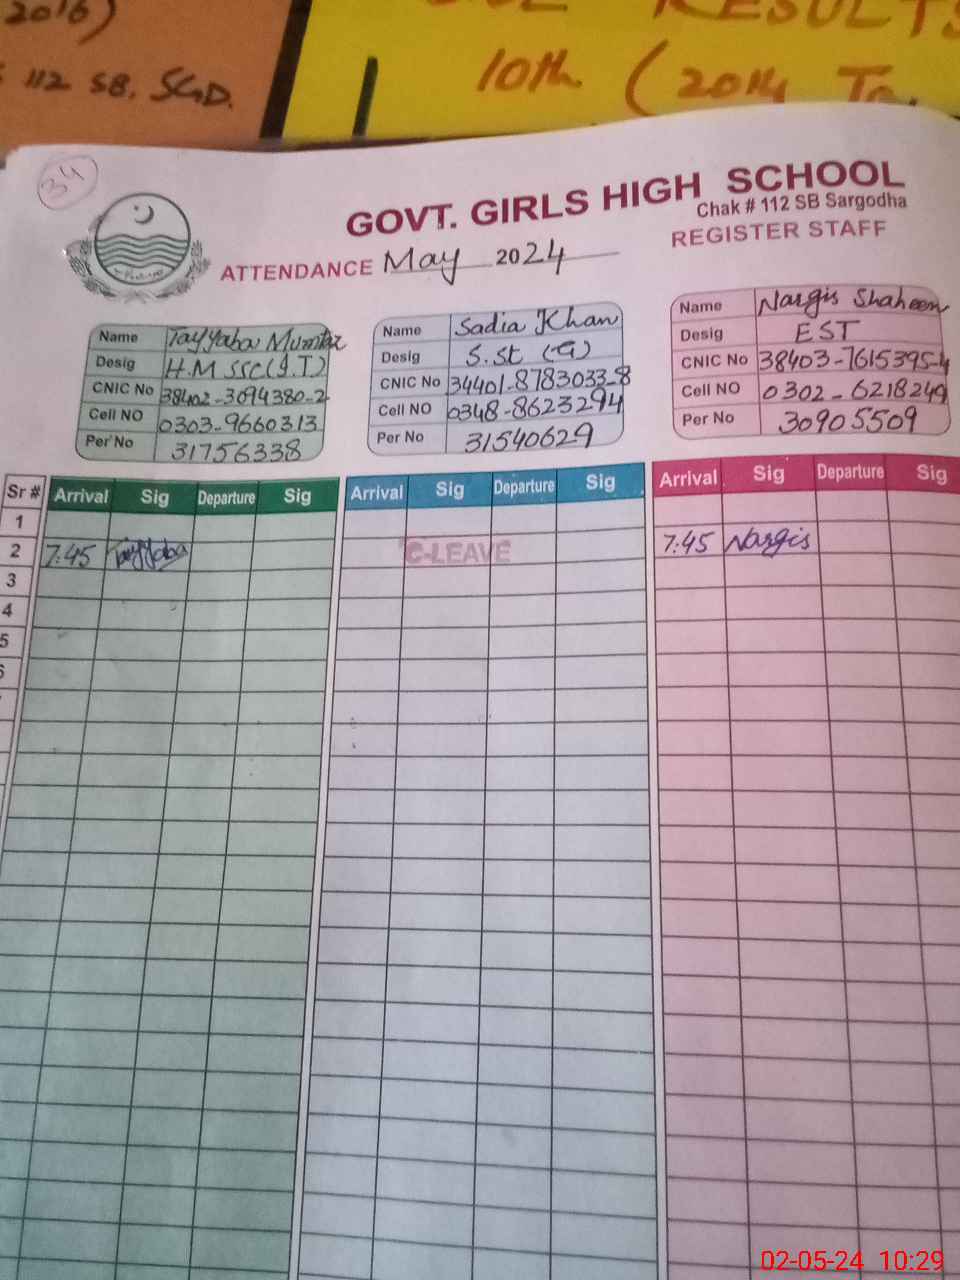 2016)
112 SB. SGD.
RESULTS
10th (2014 To
34
GOVT. GIRLS HIGH SCHOOL
Chak # 112 SB Sargodha
ATTENDANCE May 2024 REGISTER STAFF
Name Tayyaba Mumtaz
Desig H.M SSC(I.T)
CNIC No 38402-3094380-2
Cell NO 0303-9660313
Per No 31756338
Name Sadia Khan
Desig S.St (G)
CNIC No 34401-8783033-8
Cell NO 0348-8623294
Per No 31540629
Name Nargis Shaheen
Desig EST
CNIC No 38403-7615395-4
Cell NO 0302-6218249
Per No 30905509
Sr # Arrival Sig Departure Sig Arrival Sig Departure Sig Arrival Sig Departure Sig
1
2 7:45 Tayyaba C-LEAVE 7:45 Nargis
3
4
5
6
02-05-24 10:29